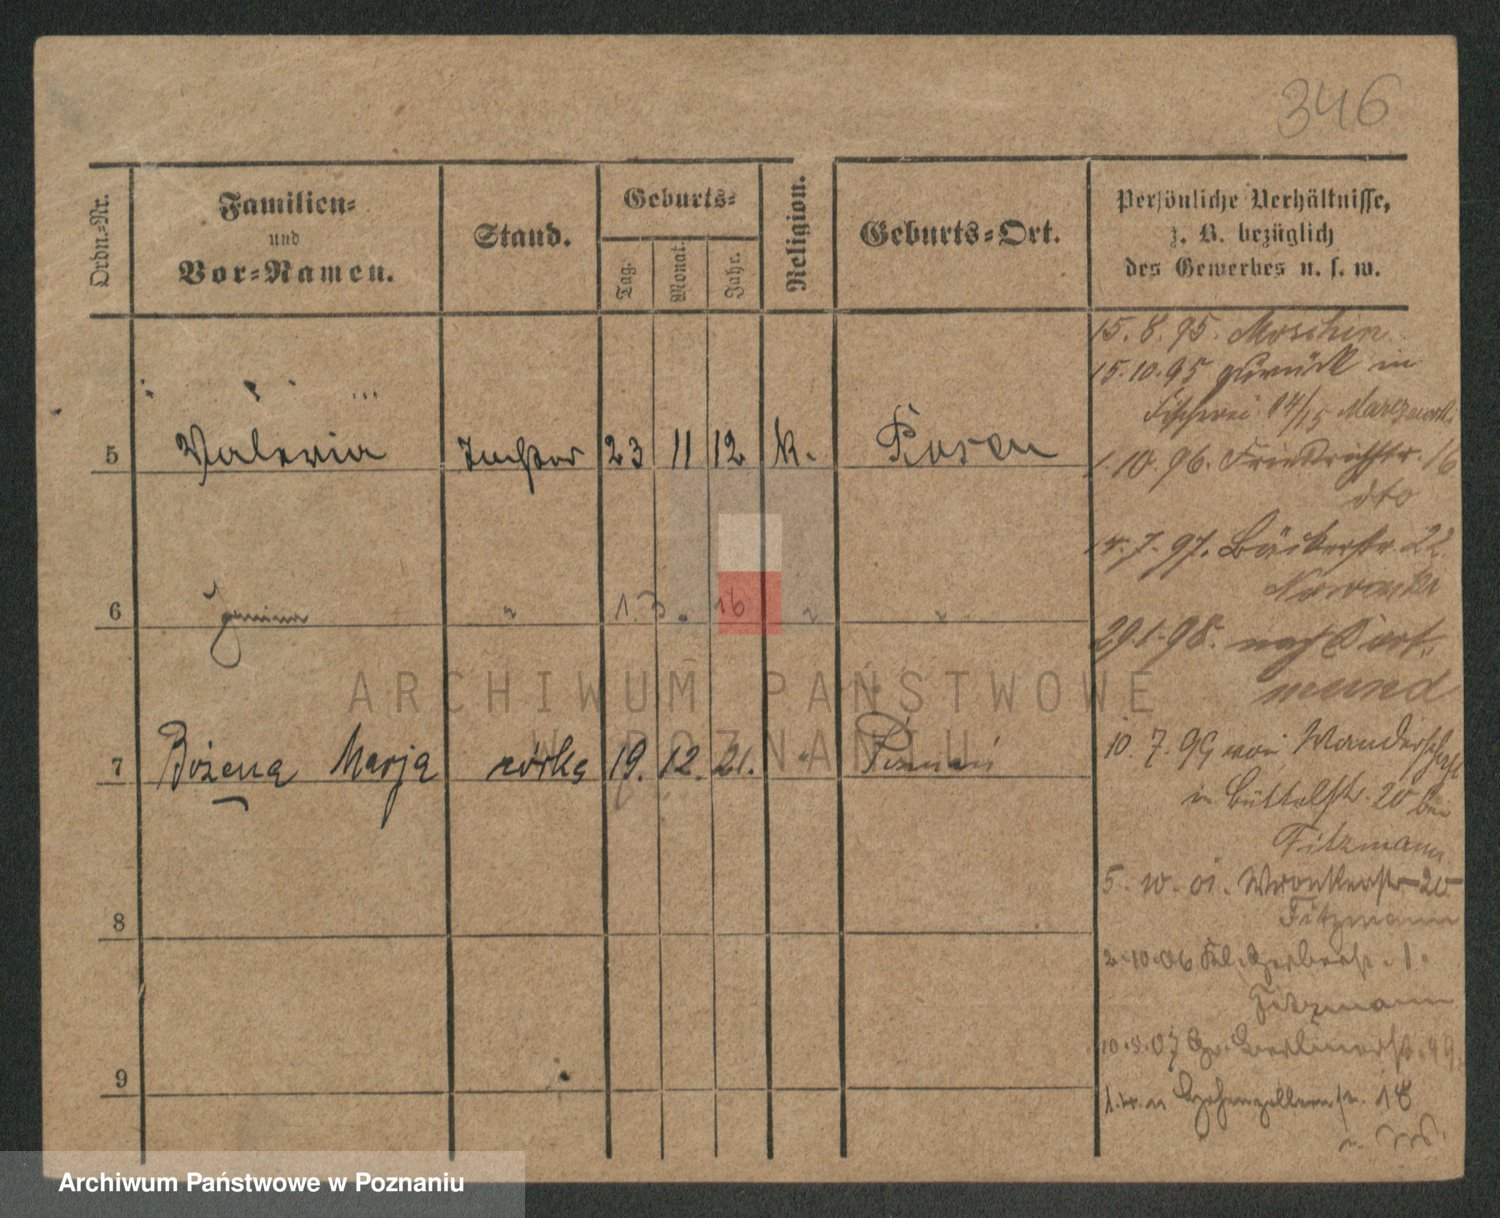 346
Ordn.-Nr.
Familien-
und
Vor-Namen.
Stand.
Geburts-
Tag.
Monat.
Jahr.
Religion.
Geburts-Ort.
Persönliche Verhältnisse,
z. B. bezüglich
des Gewerbes u. s. w.
15. 8. 95. Moschin
15. 10. 95 zurück in
Fischerei 14/15
5 Valeria Tochter 23 11 12 k. Posen
1. 10. 96. Friedrichstr. 16
dto
7. 97. Bäckerstr. 22
6 " 1. 3. 16 " "
29 1. 98. nach Dort-
mund
10. 7. 99 von Wanderschaft
7 Bożena Marja córka 19. 12. 21. " Poznań
in Büttelstr. 20 bei
Fitzmann
5. 10. 01. Wronkerstr 20
Fitzmann
8
2. 10. 06 Kl. Gerberstr. 1.
Fitzmann
10. 8. 07 Gr. Berlinerstr. 99.
9
Hohenzollernstr. 18
ARCHIWUM PAŃSTWOWE
W POZNANIU
Archiwum Państwowe w Poznaniu